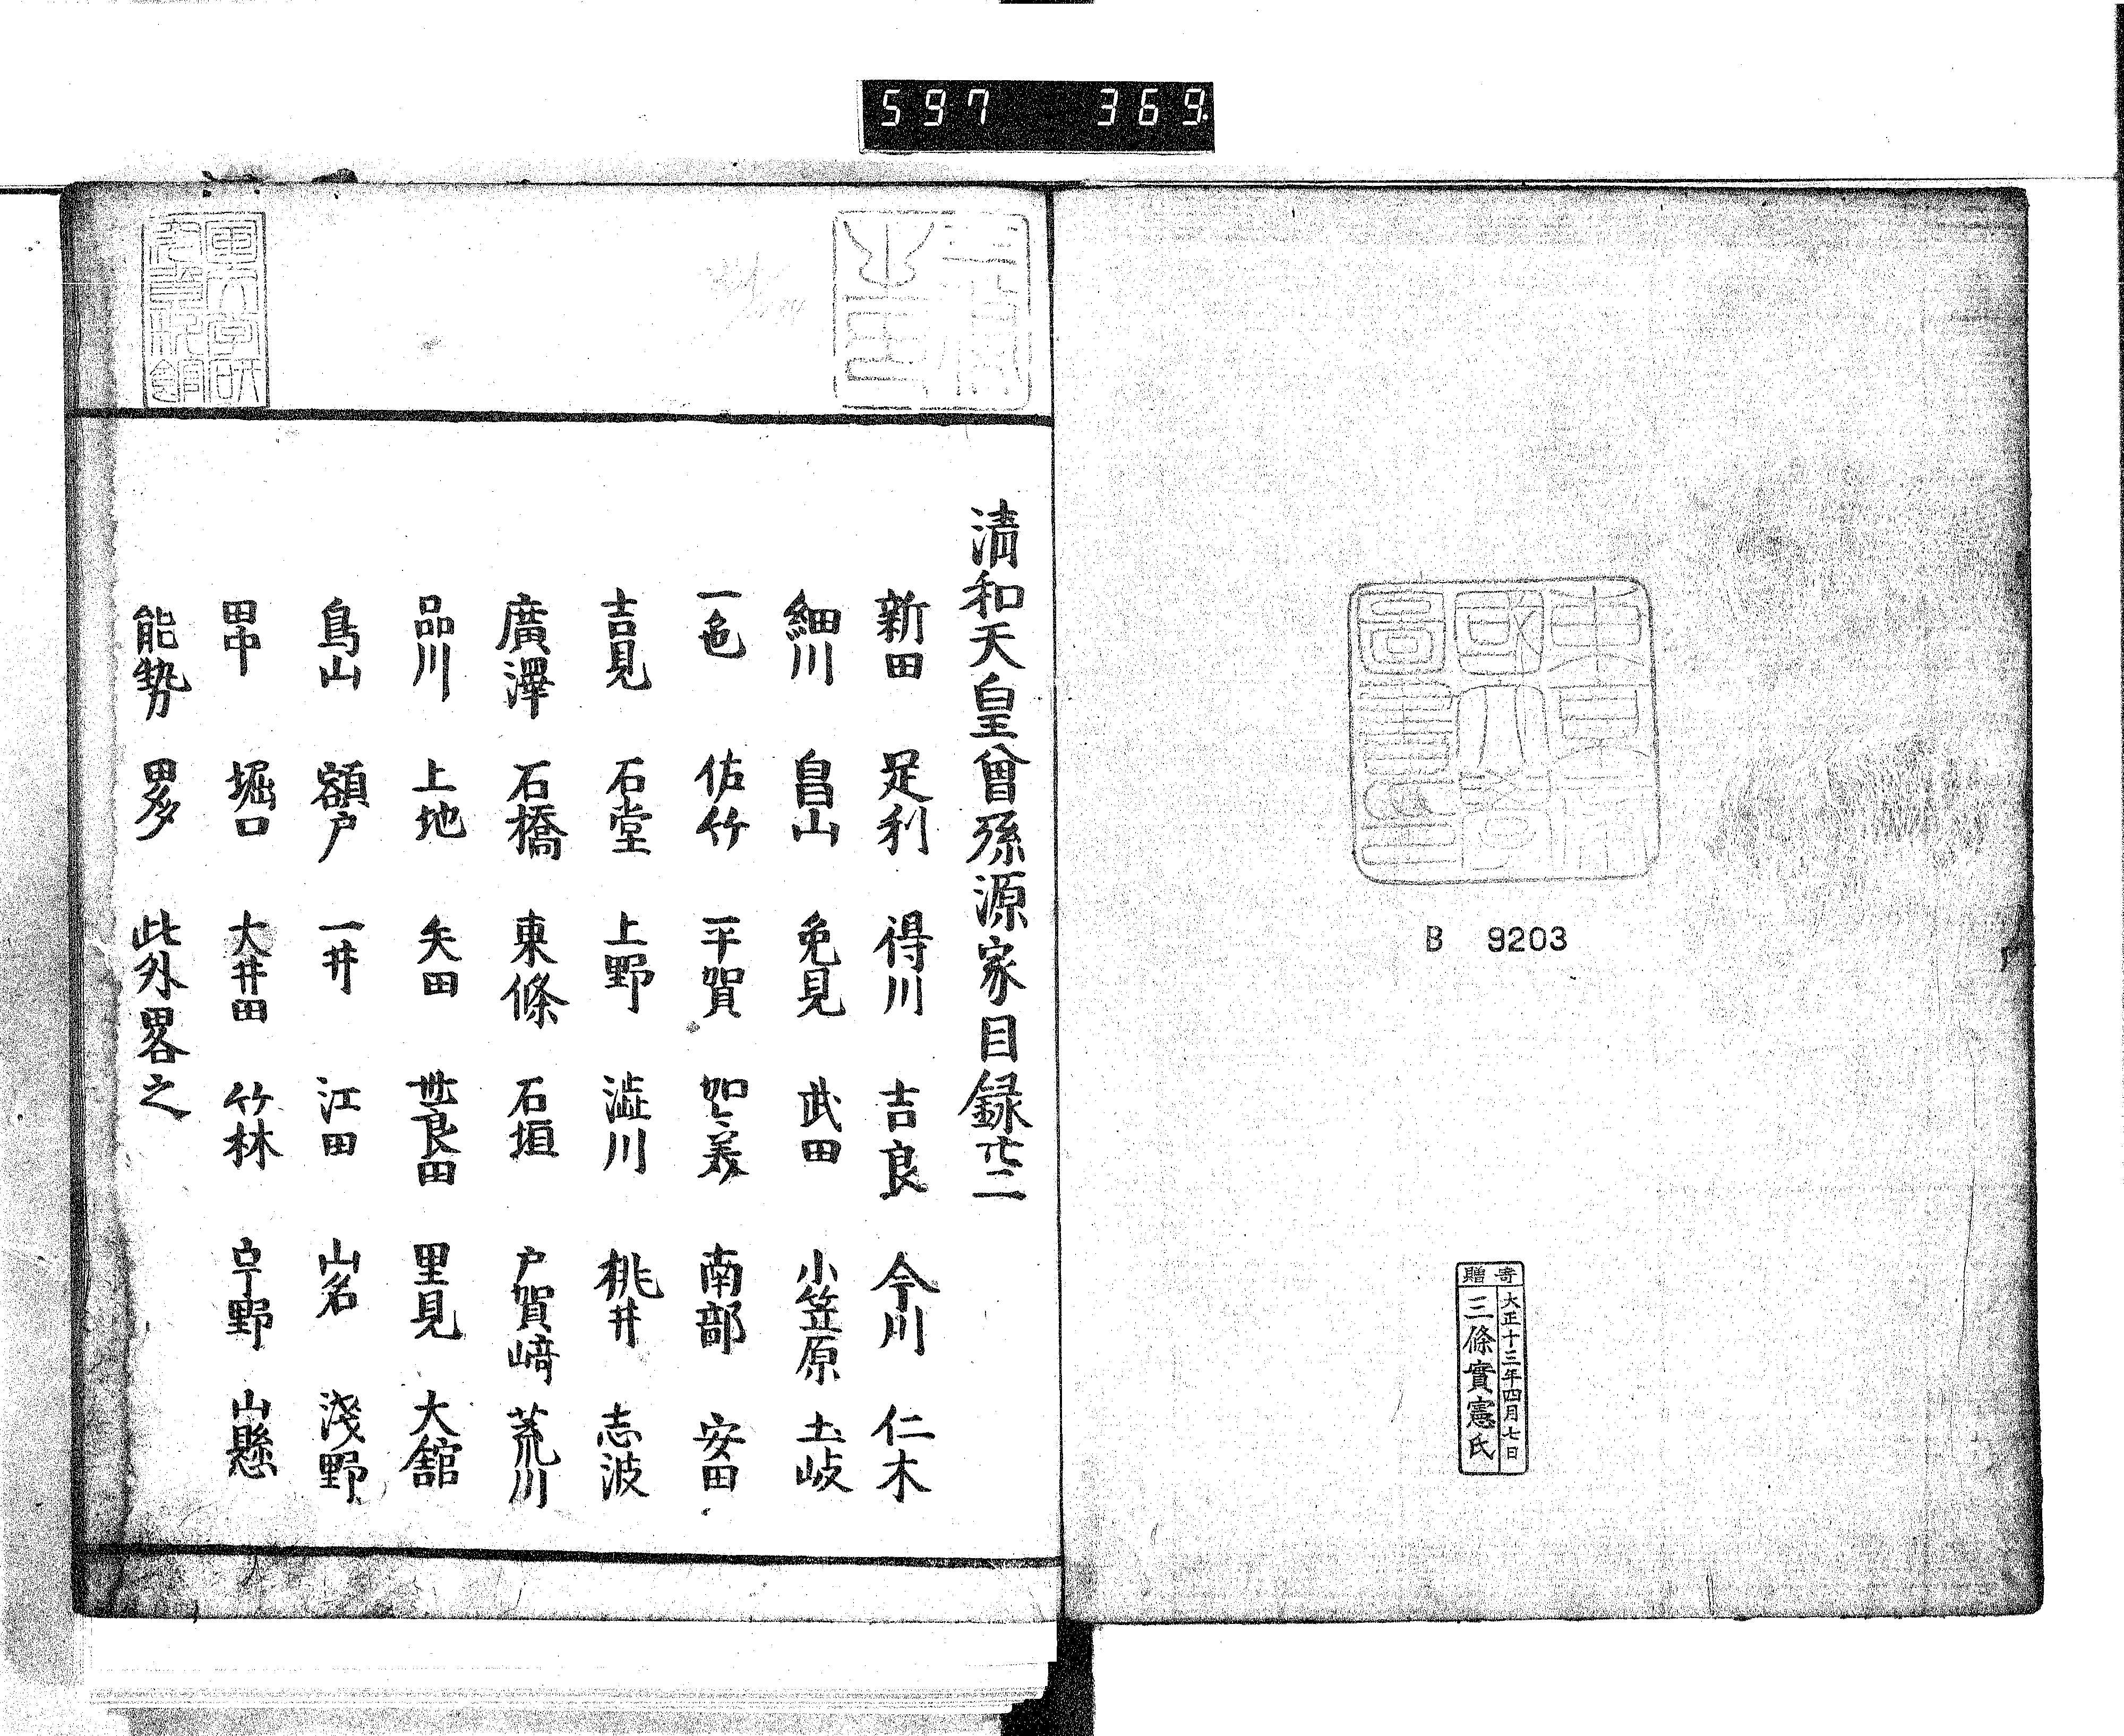 597 369
東京帝
國大學
圖書印
B 9203
寄贈
大正十三年四月七日
三條實憲氏
清和天皇曾孫源家目録廿二
新田 足利 得川 吉良 今川 仁木
細川 畠山 免見 武田 小笠原 土岐
一色 佐竹 平賀 加々美 南部 安田
吉見 石堂 上野 澁川 桃井 志波
廣澤 石橋 東條 石垣 戸賀﨑 荒川
品川 上地 矢田 世良田 里見 大舘
鳥山 額戸 一井 江田 山名 淺野
田中 堀口 大井田 竹林 野 山縣
能勢 多田 此外畧之